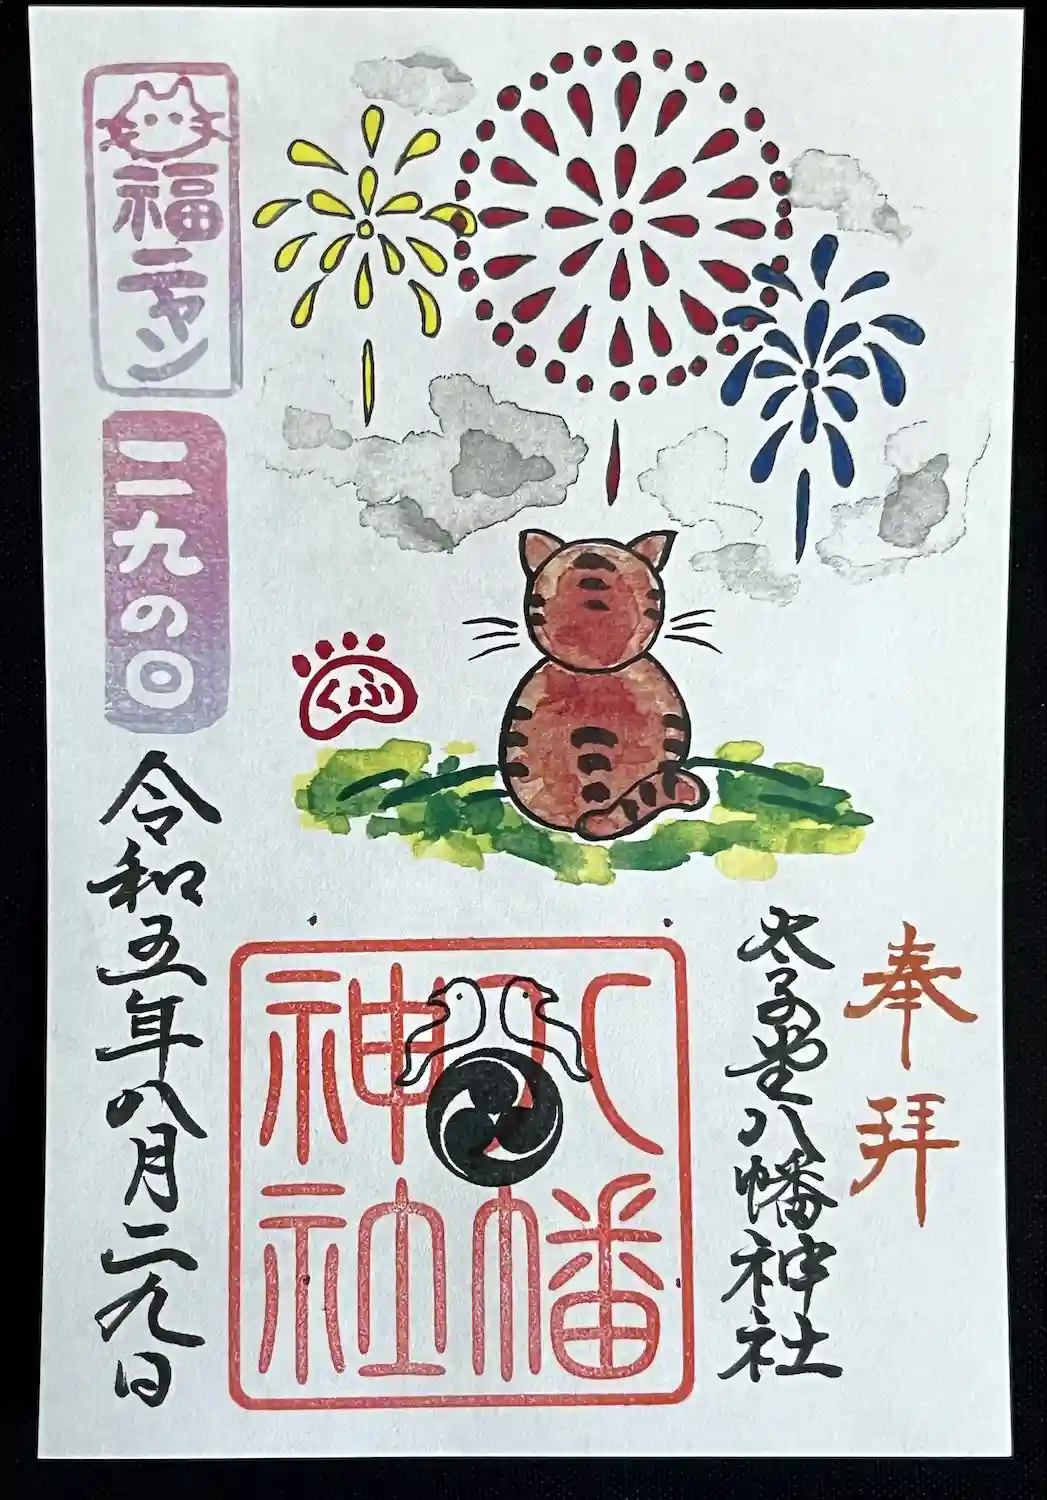 奉拝
太子堂八幡神社
八幡
神社
ふく
福ニャン
二九の日
令和五年八月二九日